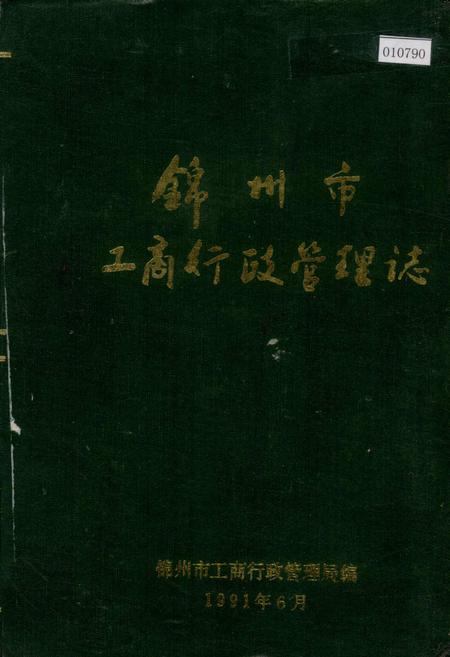 010790
錦州市
工商行政管理誌
錦州市工商行政管理局编
1991年6月